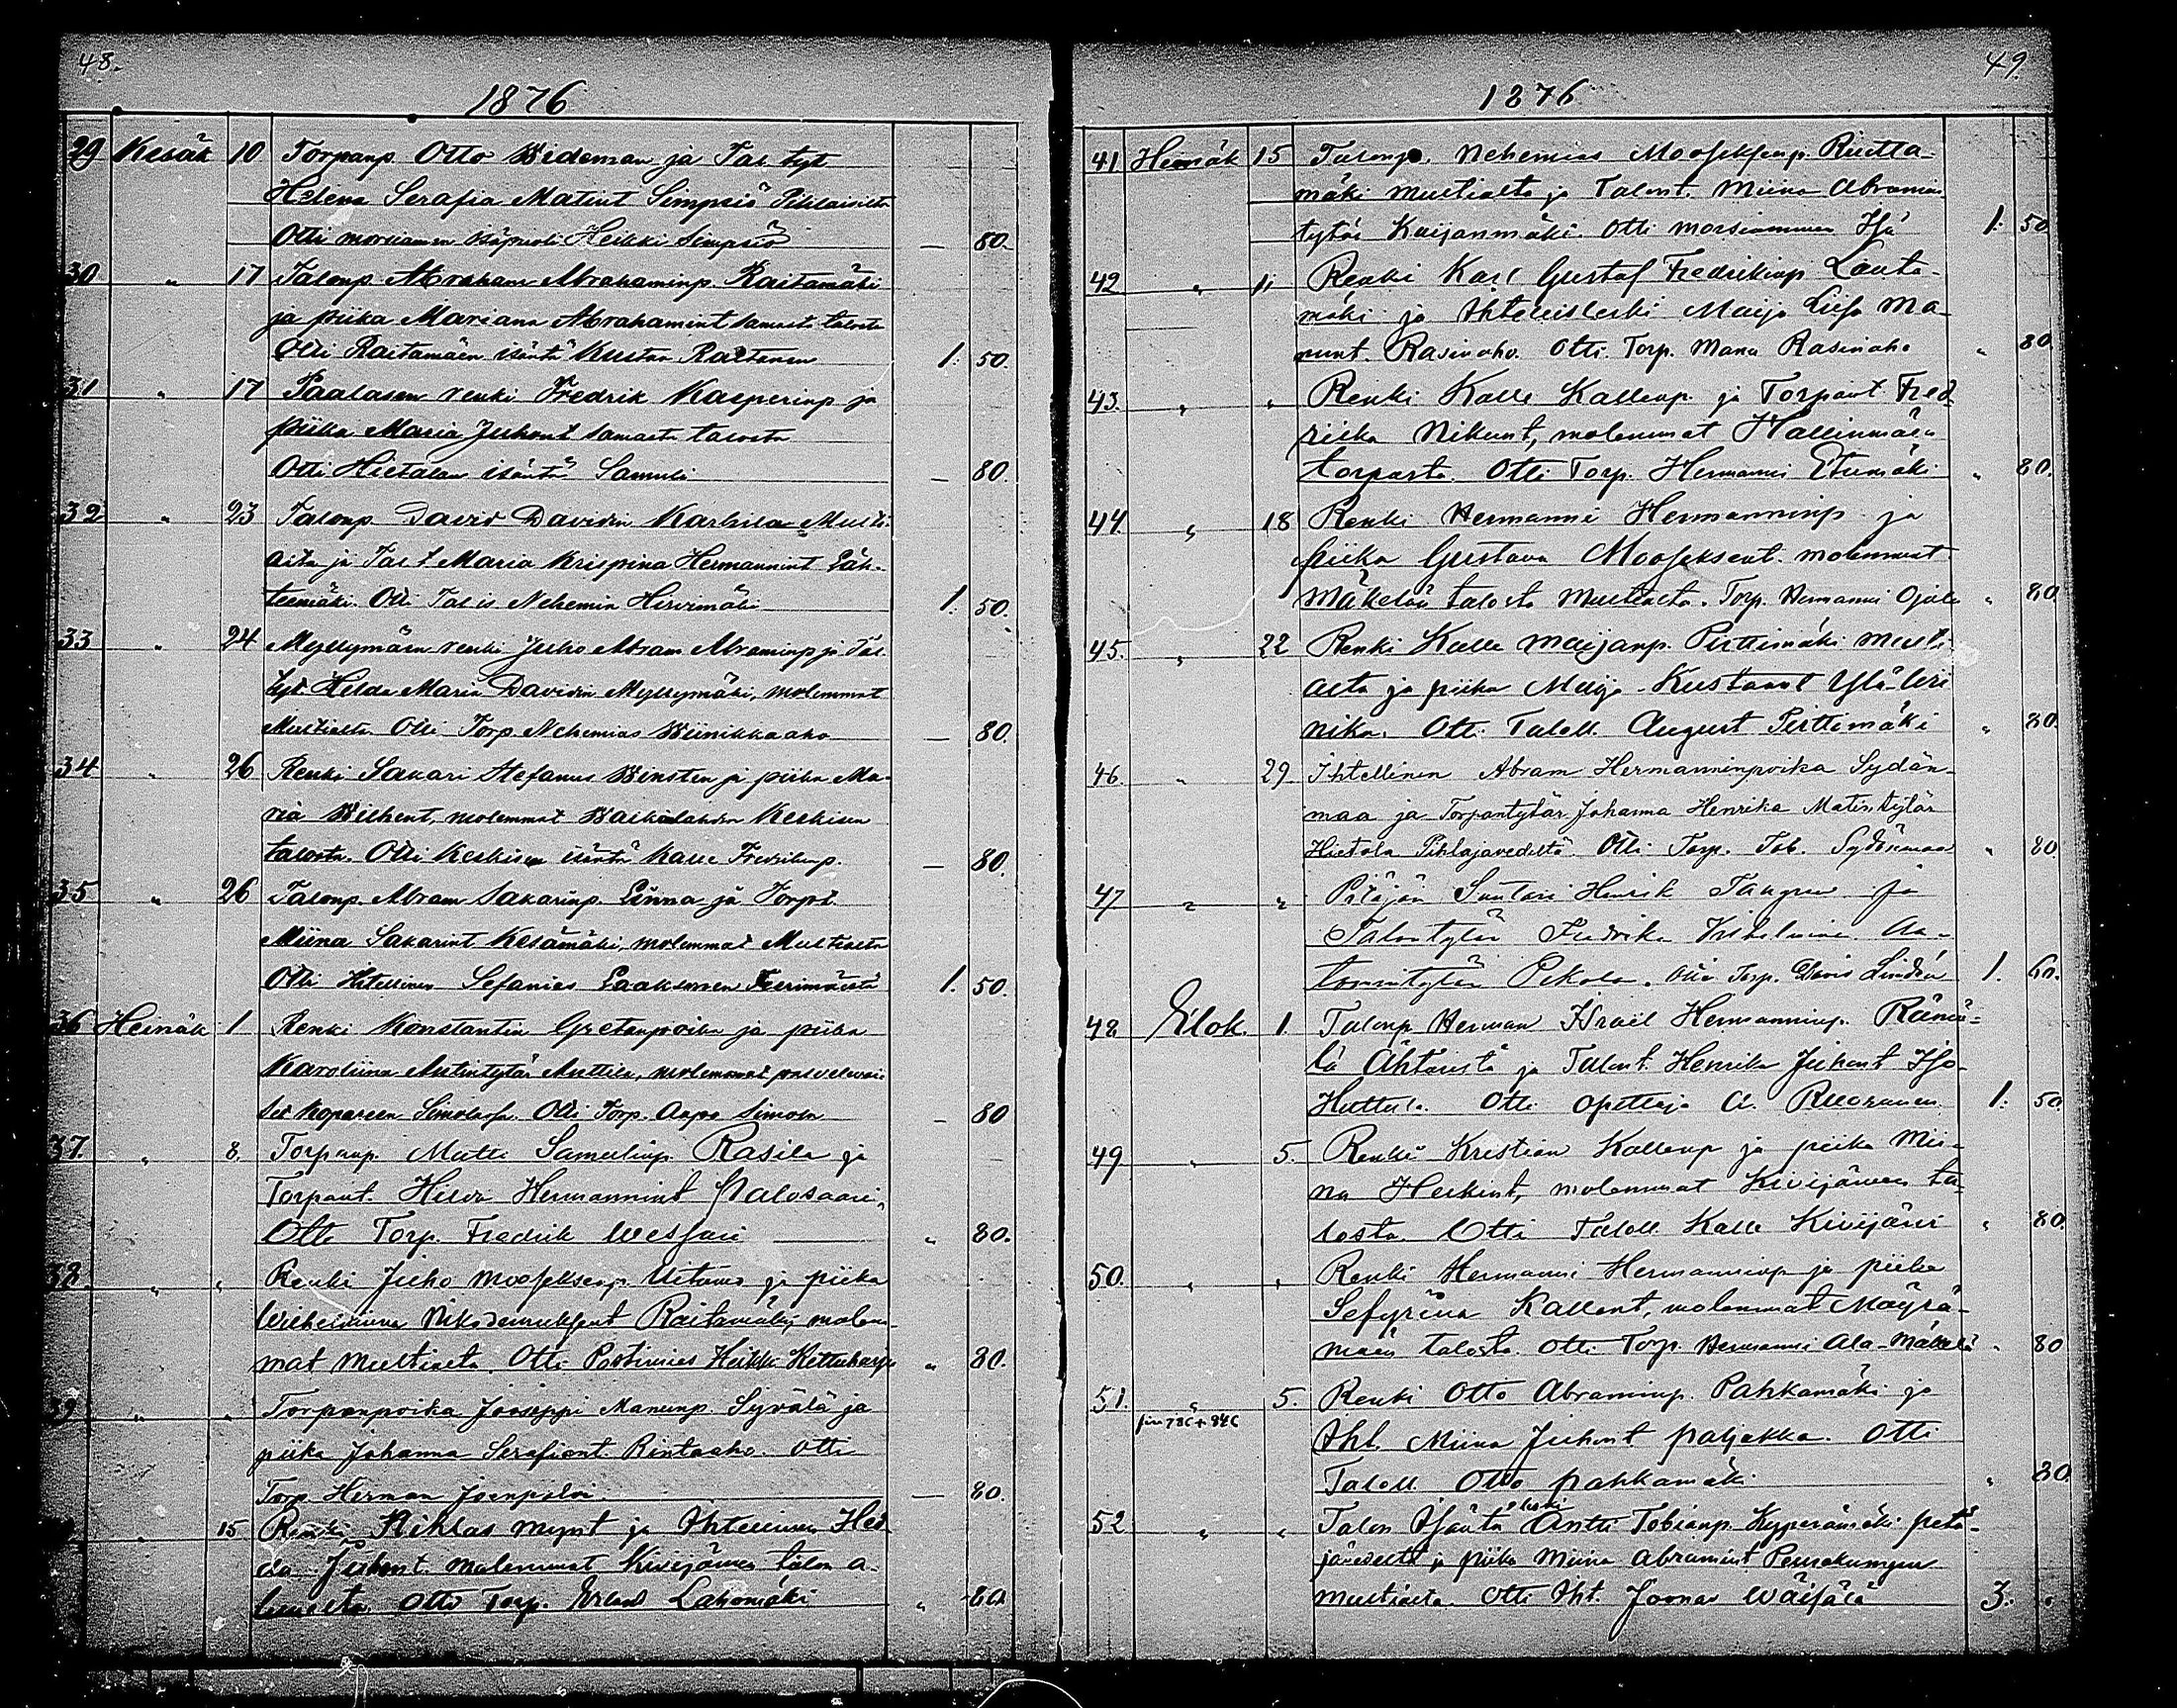 48.
1876
29 Kesäk 10 Torpanp. Otto Wideman ja Tal. tyt
Helena Serafia Matint Simpsiö Pihlaisilta
Otti morsiamen isäpuoli Heikki Simpsiö — 80.
30 " 17 Talonp. Abraham Abrahaminp. Raitamäki
ja piika Mariana Abrahamint samasta talosta
Otti Raitamäen isäntä Kustaa Raitanen 1. 50.
31 " 17 Paalasen renki Fredrik Kasperinp ja
piika Maria Juhont samasta talosta
Otti Hietalan isäntä Samuli — 80.
32 " 23 Talonp. David Davidin Karhila Multi-
alta ja Tal t Maria Krispina Hermannint Läh-
teenmäki. Otti Tal is Nehemia Hirvimäki 1. 50.
33 " 24 Myllymäen renki Juho Abram Abraminp ja Tal.
tyt. Helda Maria Davidin Myllymäki, molemmat
Multialta. Otti Torp. Nehemias Wiinikkaaho — 80.
34 " 26 Renki Sakari Stefanus Winsten ja piika Ma-
ria Wilhent, molemmat Keskisen
talosta. Otti Keskisen isäntä Kalle Fredrikinp. — 80.
35 " 26 Talonp. Abram Sakarinp. Linna ja Torpt
Miina Sakarint Kesämäki, molemmat Multialta
Otti Itellinen Sefanias Laaksonen 1. 50.
36 Heinäk 1 Renki Konstantin Gretanpoika ja piika
Karoliina Antintytär Anttila, molemmat palvelevai
set Kopareen Simolassa. Otti Torp. Aapo Simola — 80
37. " 8. Torpanp. Matti Samulinp. Rasila ja
Torpant. Hilda Hermannint Salosaari,
Otti Torp. Fredrik Wessari " 80.
38 " " Renki Juho Mooseksenp. Uitamo ja piika
Wilhelmiina Nikodemuksent Raitamäki, molem-
mat Multialta. Otti Postimies Heikki Kettuharju " 80.
39 " " Torpanpoika Jooseppi Manunp. Syvälä ja
piika Johanna Serafiant. Rintaaho. Otti
Torp. Herman Joenpolvi. — 80.
" 15 Renki Niklas Mynt ja Ihtellinen Hed-
da Juhont. molemmat Kivijärven talon a-
lueelta. Otti Torp. Erland Lahomäki " 80.
49.
1876
41 Heinäk 15 Talonp. Nehemias Mooseksenp. Riutta-
mäki Multialta ja Talont. Miina Abramin
tytär Kaijanmäki. Otti morsiammen Isä 1. 50
42 " " Renki Karl Gustaf Fredrikinp Lauta-
mäki ja Ihtellisleski Maija Liisa Ma-
nunt. Rasinaho. Otti. Torp. Manu Rasinaho " 80.
43. " " Renki Kalle Kallenp. ja Torpant. Fred-
riika Nikunt, molemmat Hallinmäen
torpasta. Otti Torp. Hermanni Etumäki " 80.
44 " 18 Renki Hermanni Hermanninp ja
piika Gustava Mooseksent. molemmat
Mäkelän talosta Multialta. Torp. Hermanni Ojala " 80
45. " 22 Renki Kalle Maijanp. Pirttimäki Multi-
alta ja piika Maija Kustaant Ylä-Viri
nika. Otti Taloll. August Pirttimäki " 80.
46. " 29 Ihtellinen Abram Hermanninpoika Sydän-
maa ja Torpantytär Johanna Henrika Matintytär
Hietala Pihlajavedeltä. Otti Torp. Tob. Sydänmaa " 80.
47 " " Pitäjän Suutari Henrik Tangren ja
Talontytär Fredrika Vilhelmina An-
tonintytär Pekola. Otti Torp. David Lindén 1. 60.
48 Elok. 1. Talonp Herman Israël Hermanninp. Rämä-
lä Ähtäristä ja Talont. Henrika Juhont Iso-
Huttula. Otti opettaja A. Ruoranen 1. 50.
49 " 5. Renki Kristian Kallenp ja piika Mii-
na Heikint, molemmat Kivijärven ta-
losta. Otti Taloll. Kalle Kivijärvi " 80.
50. " " Renki Hermanni Hermanninp ja piika
Sefyriina Kallent, molemmat Mäyrä-
mäen talosta. Otti Torp. Hermanni Ala-Mäkelä " 80
51. " 5. Renki Otto Abraminp. Pahkamäki ja
fin 78C + 84C
Iht. Miina Juhont Paljakka. Otti
Taloll. Otto Pahkamäki " 80.
52 " " Talon Isäntä leski Antti Tobianp. Kyperämäki Petä-
jävedeltä ja piika Miina Abramint Peurakumpu
Multialta. Otti Iht. Joonas Wäisälä 3. "